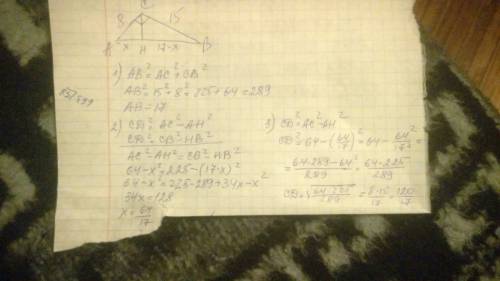 C
8 15
A x H 17-x B
1) AB² = AC² + CB²
AB² = 15² + 8² = 225 + 64 = 289
AB = 17
2) CD² = AC² - AH²
CD² = CB² - HB²
AC² - AH² = CB² - HB²
64 - x² = 225 - (17-x)²
64 - x² = 225 - 289 + 34x - x²
34x = 128
x = 64/17
3) CD² = AC² - AH²
CD² = 64 - (64/17)² = 64 - 64²/17² =
= 64·289 - 64²/289 = 64·225/289
CD = √64·225/289 = 8·15/17 = 120/17